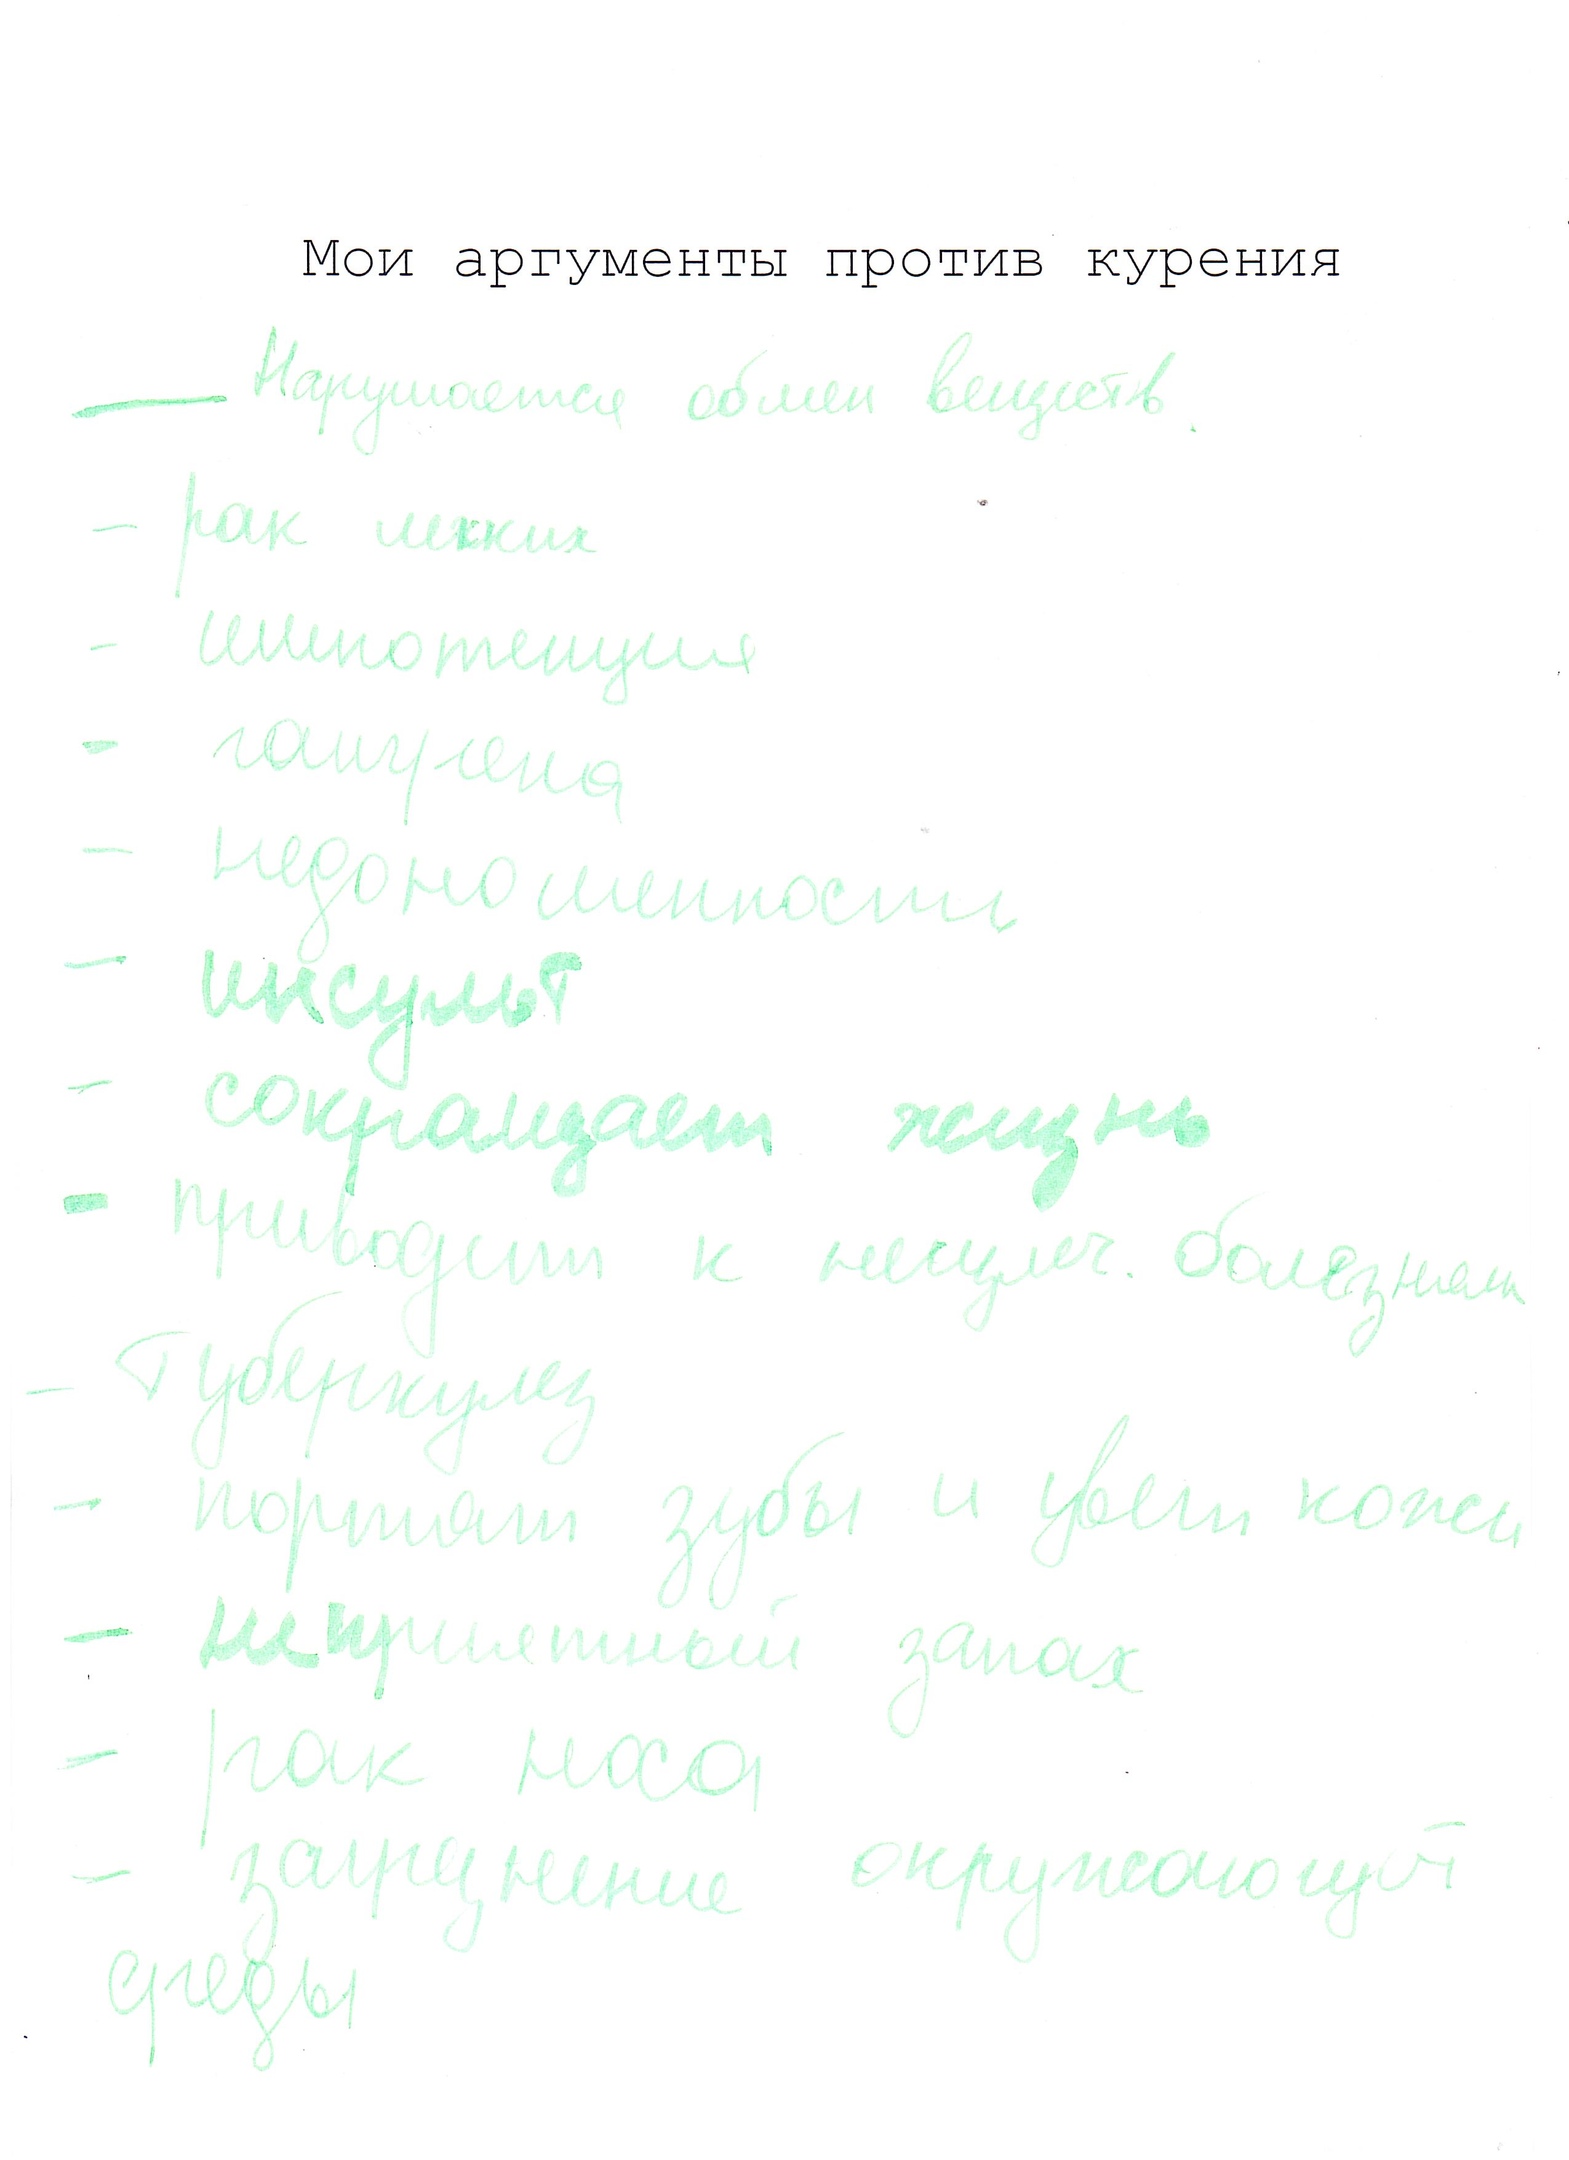 Мои аргументы против курения
— Нарушается обмен веществ.
- рак легких
- импотенция
- гангрена
- недоношенность
- инсульт
- сокращает жизнь
- приводит к неизлеч. болезням
- Туберкулез
- портят зубы и цвет кожи
- неприятный запах
- рак носа
- загрязнение окружающей
среды